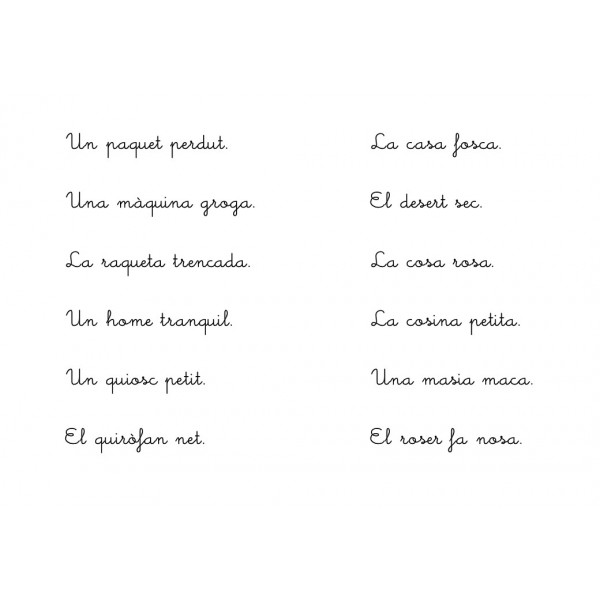 Un paquet perdut.
Una màquina groga.
La raqueta trencada.
Un home tranquil.
Un quiosc petit.
El quiròfan net.
La casa fosca.
El desert sec.
La cosa rosa.
La cosina petita.
Una masia maca.
El roser fa nosa.